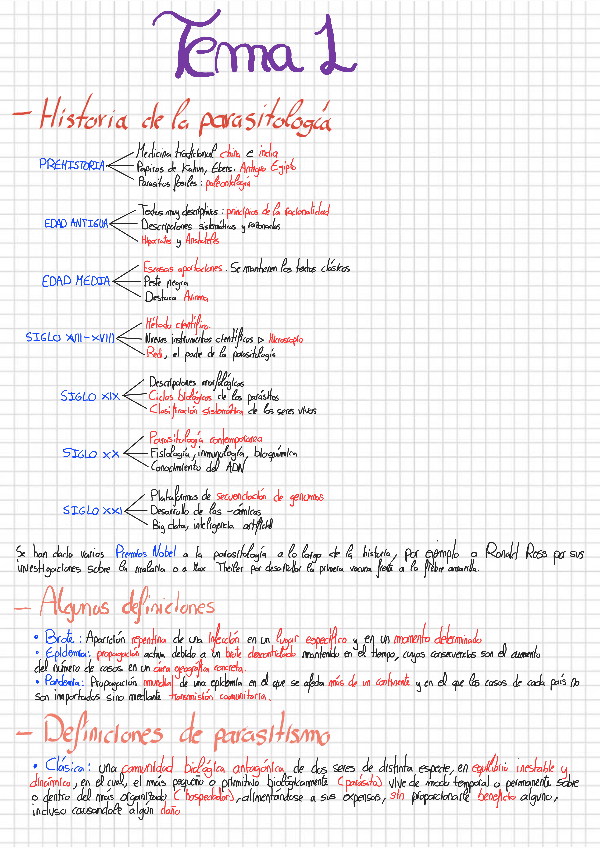 Tema 1
- Historia de la parasitología
PREHISTORIA
Medicina tradicional china e india
Papiros de Kahun, Ebers. Antiguo Egipto
Parasitos fosiles: paleontología
EDAD ANTIGUA
Textos muy descriptivos: principios de la racionalidad
Descripciones sistemáticas y razonadas
Hipócrates y Aristóteles
EDAD MEDIA
Escasas aportaciones. Se mantienen los textos clásicos
Peste negra
Destaca
SIGLO XVII-XVIII
Método científico.
Nuevos instrumentos científicos ▷ Microscopio
Redi, el padre de la parasitología
SIGLO XIX
Descripciones morfológicas
Ciclos biológicos de los parásitos
Clasificación sistemática de los seres vivos
SIGLO XX
Parasitología contemporanea
Fisiología, inmunología, bioquímica
Conocimiento del ADN
SIGLO XXI
Plataformas de secuenciación de genomas
Desarrollo de las -ómicas
Big data, inteligencia artificial
Se han dado varios Premios Nobel a la parasitología a lo largo de la historia, por ejemplo a Ronald Ross por sus
investigaciones sobre la malaria o a Max Theiler por desarrollar la primera vacuna frente a la fiebre amarilla.
- Algunas definiciones
• Brote: Aparición repentina de una infección en un lugar específico y en un momento determinado
• Epidemia: propagación activa debido a un brote descontrolado mantenido en el tiempo, cuyas consecuencias son el aumento
del número de casos en un área geográfica concreta.
• Pandemia: Propagación mundial de una epidemia en el que se afecta más de un continente y en el que los casos de cada país no
son importados sino mediante transmisión comunitaria.
- Definiciones de parasitismo
• Clásica: una comunidad biológica antagónica de dos seres de distinta especie, en equilibrio inestable y
dinámico, en el cual, el más pequeño o primitivo biológicamente (parásito) vive de modo temporal o permanente sobre
o dentro del más organizado (hospedador), alimentandose a sus expensas, sin proporcionarle beneficio alguno,
incluso causandole algún daño